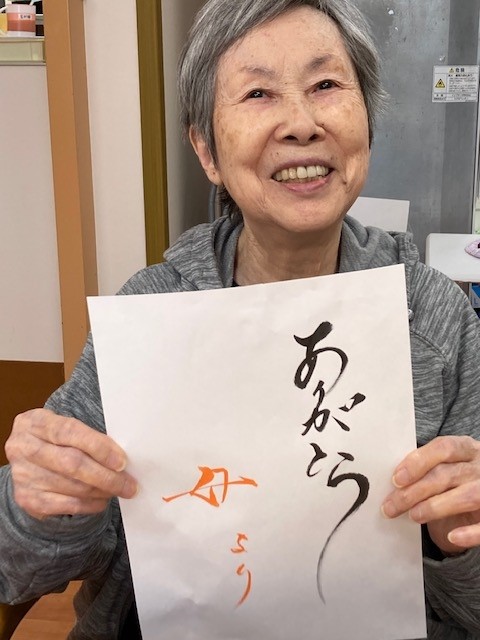 ありがとう
母より